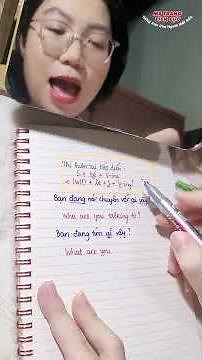 Thì hiện tại tiếp diễn
S + be + V-ing
(WH) + be + S + V-ing?
Bạn đang nói chuyện với ai vậy?
Who are you talking to?
Bạn đang tìm gì vậy?
What are you